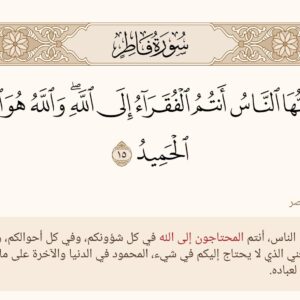 سُورَةُ فَاطِرٍ
النَّاسُ أَنتُمُ الْفُقَرَاءُ إِلَى اللَّهِ ۖ وَاللَّهُ هُوَ
الْحَمِيدُ ١٥
الناس، أنتم المحتاجون إلى الله في كل شؤونكم، وفي كل أحوالكم،
الذي لا يحتاج إليكم في شيء، المحمود في الدنيا والآخرة على
لعباده.